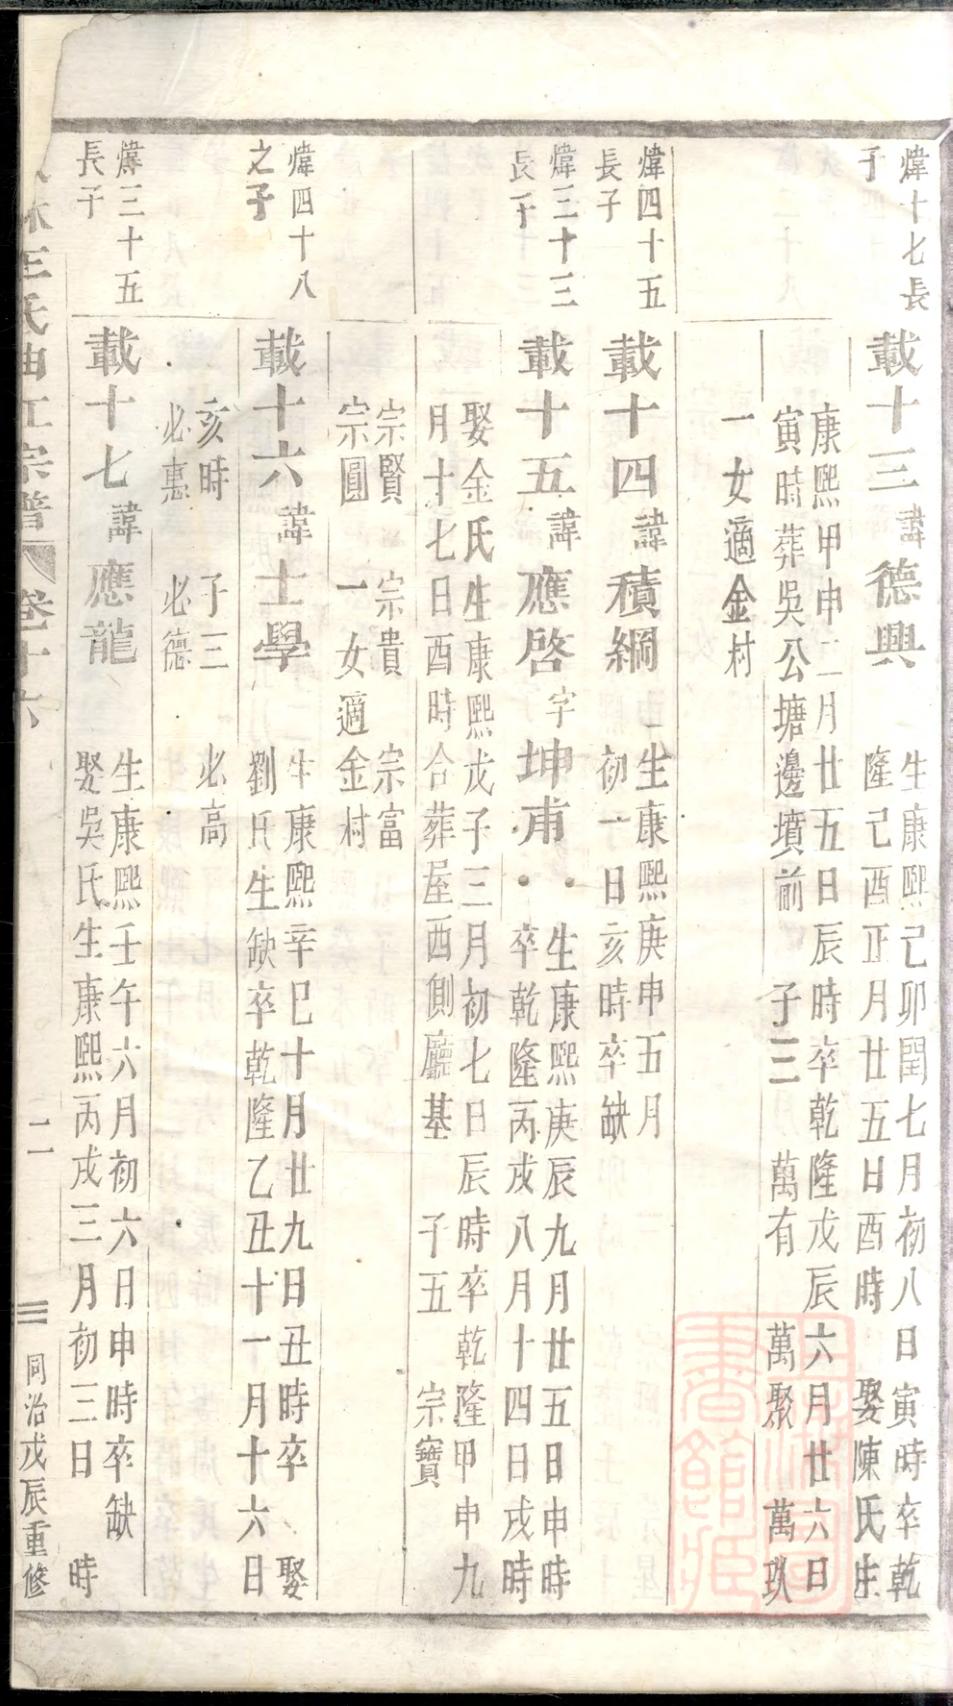 煒十七長
子
載十三諱德興
生康熙己卯閏七月初八日寅時卒乾
隆己酉正月廿五日酉時 娶陳氏生
康熙甲申二月廿五日辰時卒乾隆戊辰六月廿六日
寅時葬吳公塘邊墳前 子三 萬有 萬聚 萬玖
一女適金村
煒四十五
長子
載十四諱積綱
生康熙庚申五月
初一日亥時卒缺
煒三十三
長子
載十五諱應啓字坤甫
生康熙庚辰九月廿五日申時
卒乾隆丙戌八月十四日戌時
娶金氏生康熙戊子三月初七日辰時卒乾隆甲申九
月十七日酉時合葬屋西側廳基 子五 宗寶
宗賢 宗貴 宗富
宗圓 一女適金村
煒四十八
之子
載十六諱士學
生康熙辛巳十月廿九日丑時卒 娶
劉氏生缺卒乾隆乙丑十一月十六日
亥時 子三 必高
必惠 必德
煒三十五
長子
載十七諱應龍
生康熙壬午六月初六日申時卒缺
娶吳氏生康熙丙戌三月初三日 時
王氏曲江宗譜 卷十六 二 三 同治戊辰重修